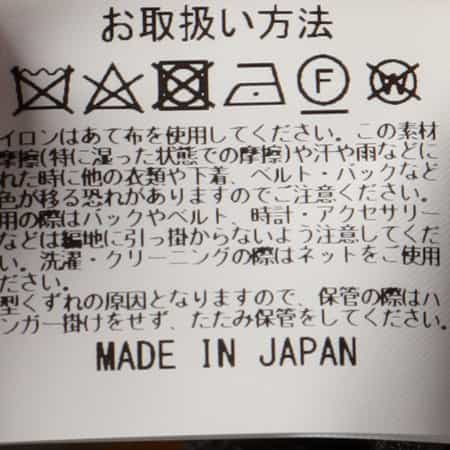 お取扱い方法
F
W
イロンはあて布を使用してください。この素材
摩擦(特に湿った状態での摩擦)や汗や雨などに
れた時に他の衣類や下着、ベルト・バックなど
色が移る恐れがありますのでご注意ください。
用の際はバックやベルト、時計・アクセサリー
などは編地に引っ掛からないよう注意してくだ
い。洗濯・クリーニングの際はネットをご使用
ださい。
型くずれの原因となりますので、保管の際はハ
ンガー掛けをせず、たたみ保管をしてください。
MADE IN JAPAN